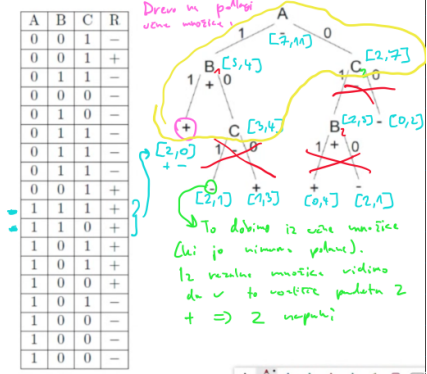 A B C R
0 0 1 −
0 0 1 +
0 1 1 −
0 0 0 −
0 1 0 −
0 1 1 −
0 1 1 −
0 1 1 −
0 0 1 +
1 1 1 +
1 1 0 +
1 0 1 +
1 0 1 +
1 0 0 +
1 0 1 −
1 0 0 −
1 0 0 −
1 0 0 −
Drevo na podlagi
učne množice.
A
1 [7,11] 0
B₁ [5,4]
C₂ [2,7]
1 + 0
1 0
+
C [3,4]
B₂ [2,5] - [0,2]
[2,0]
+ -
1 - 0
1 + 0
- + + -
[2,1] [1,3] [0,4] [2,1]
To dobimo iz učne množice
(ki je nimamo podane).
Iz množice vidimo
da v to padeta 2
+ => 2 napaki